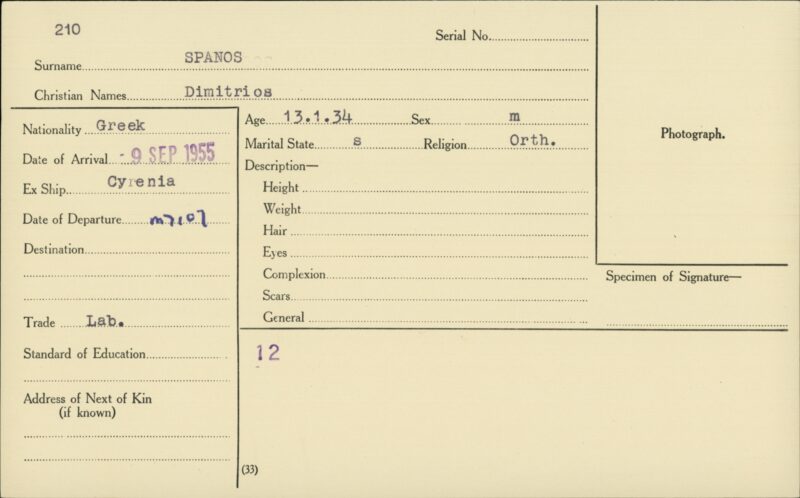 210
Serial No.
Surname SPANOS
Christian Names Dimitrios
Nationality Greek
Date of Arrival - 9 SEP 1955
Ex Ship Cyrenia
Date of Departure
Destination
Trade Lab.
Standard of Education
Address of Next of Kin
(if known)
Age 13.1.34 Sex m
Marital State s Religion Orth.
Description—
Height
Weight
Hair
Eyes
Complexion
Scars
General
12
(33)
Photograph.
Specimen of Signature—